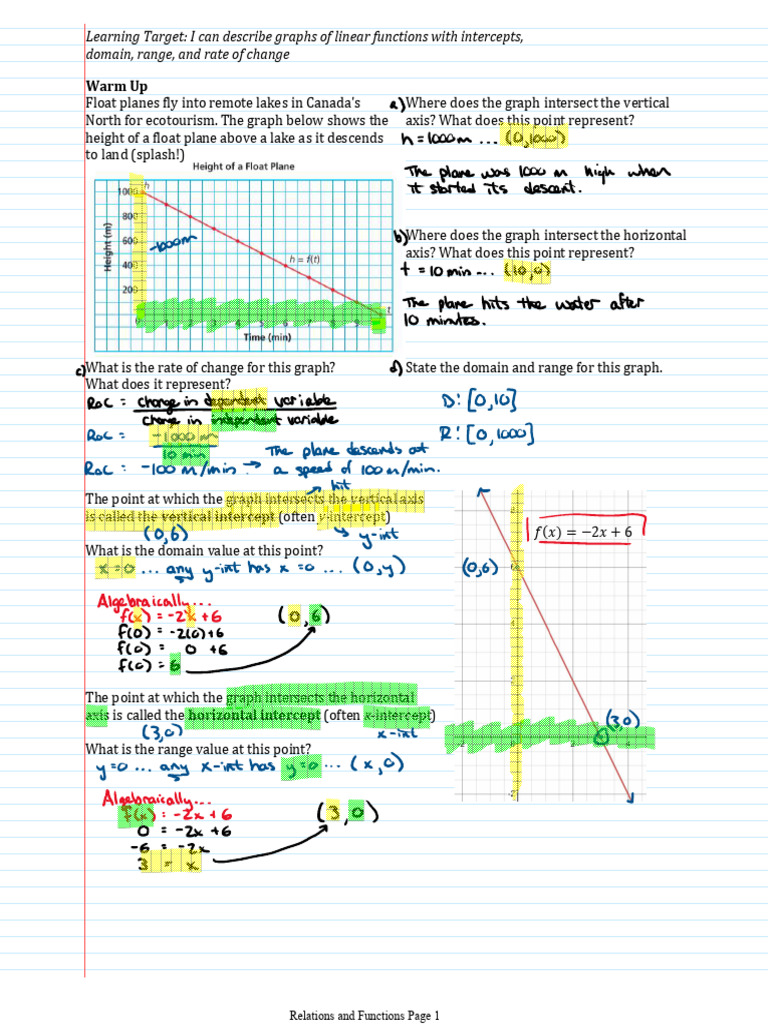 Learning Target: I can describe graphs of linear functions with intercepts,
domain, range, and rate of change
Warm Up
Float planes fly into remote lakes in Canada's
North for ecotourism. The graph below shows the
height of a float plane above a lake as it descends
to land (splash!)
Height of a Float Plane
Height (m)
1000
800
600
400
200
h
-1000m
h = f(t)
t
0 1 2 3 4 5 6 7 8 9
Time (min)
a) Where does the graph intersect the vertical
axis? What does this point represent?
h = 1000m ... (0,1000)
The plane was 1000 m high when
it started its descent.
b) Where does the graph intersect the horizontal
axis? What does this point represent?
t = 10 min ... (10,0)
The plane hits the water after
10 minutes.
c) What is the rate of change for this graph?
What does it represent?
RoC = change in dependent variable
change in independent variable
RoC = -1000 m
10 min
RoC = -100 m/min → The plane descends at
a speed of 100 m/min.
d) State the domain and range for this graph.
D: [0,10]
R: [0,1000]
hit
The point at which the graph intersects the vertical axis
is called the vertical intercept (often y-intercept)
(0,6) y-int
What is the domain value at this point?
x=0 ... any y-int has x=0 ... (0,y)
Algebraically...
f(x) = -2x +6
f(0) = -2(0)+6
f(0) = 0 +6
f(0) = 6
(0,6)
The point at which the graph intersects the horizontal
axis is called the horizontal intercept (often x-intercept)
(3,0) x-int
What is the range value at this point?
y=0 ... any x-int has y=0 ... (x,0)
Algebraically...
f(x) = -2x + 6
0 = -2x +6
-6 = -2x
3 = x
(3,0)
f(x) = −2x + 6
(0,6)
(3,0)
Relations and Functions Page 1